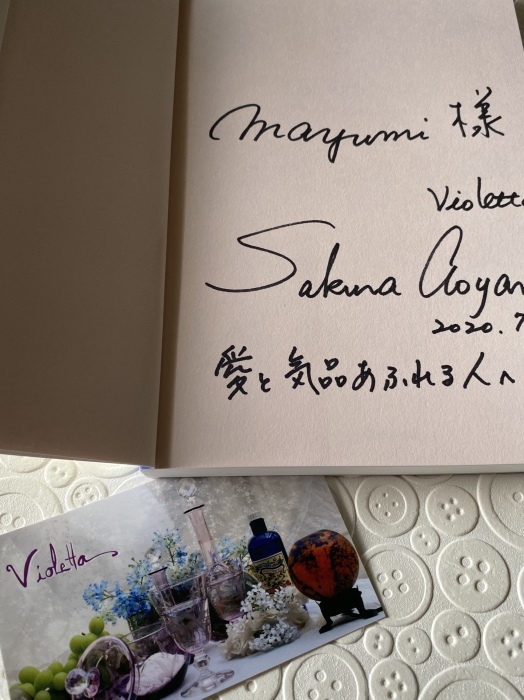 Mayumi 様
Violetta
Sakura Aoyam
2020.7
愛と気品あふれる人へ
Violetta